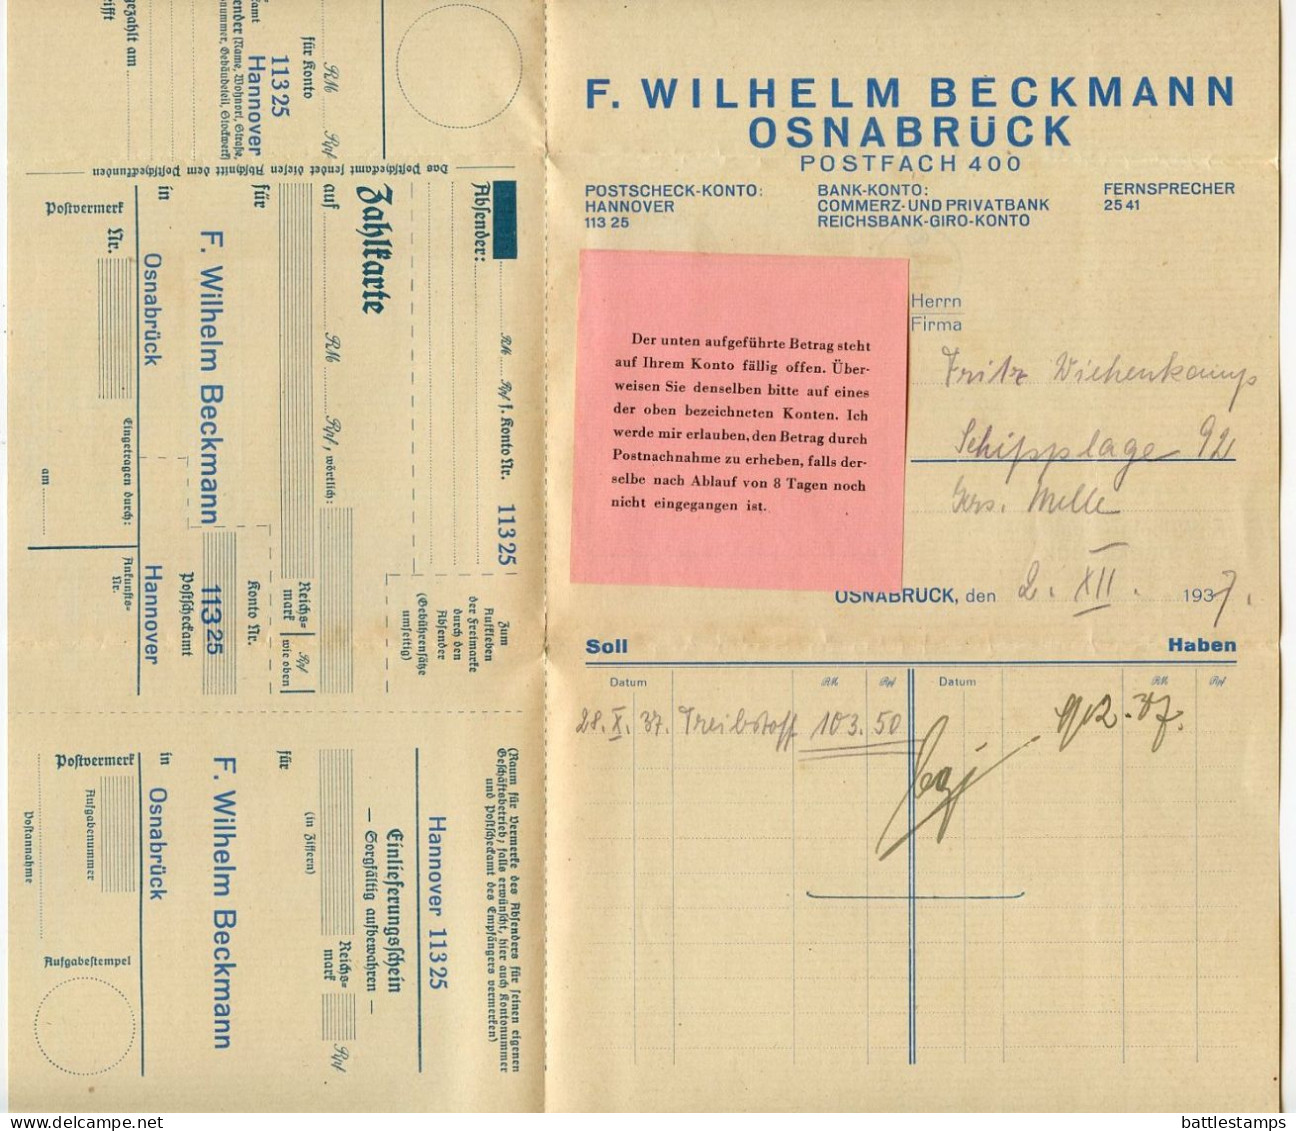 F. WILHELM BECKMANN
OSNABRÜCK
POSTFACH 400
POSTSCHECK-KONTO:
HANNOVER
113 25
BANK-KONTO:
COMMERZ- UND PRIVATBANK
REICHSBANK-GIRO-KONTO
FERNSPRECHER
25 41
Herrn
Firma
Fritz Wiehenkamp
Schipplage 92
Krs. Melle
Der unten aufgeführte Betrag steht
auf Ihrem Konto fällig offen. Über-
weisen Sie denselben bitte auf eines
der oben bezeichneten Konten. Ich
werde mir erlauben, den Betrag durch
Postnachnahme zu erheben, falls der-
selbe nach Ablauf von 8 Tagen noch
nicht eingegangen ist.
OSNABRÜCK, den 2. XII. 1937.
Soll Haben
Datum RM Rpf Datum RM Rpf
28. X. 37. Treibstoff 103.50
gezahlt am
für Konto
RM Rpf
113 25
Hannover
(Name, Wohnort, Straße,
Gebäudeteil, Stockwerk)
Das Postscheckamt sendet diesen Abschnitt dem Postscheckkunden
Absender:
RM Rpf f. Konto Nr. 113 25
Zahlkarte
Zum
Aufkleben
der Freimarke
durch den
Absender
(Gebührensätze
umseitig)
auf RM Rpf, wörtlich:
Reichs-
mark
Rpf
wie oben
für
F. Wilhelm Beckmann
Konto Nr.
113 25
Postscheckamt
in Osnabrück
Hannover
Postvermerk
Nr.
Eingetragen durch:
am
Ankunfts-
Nr.
(Raum für Vermerke des Absenders für seinen eigenen
Geschäftsbetrieb; falls erwünscht, hier auch Kontonummer
und Postscheckamt des Empfängers vermerken)
Hannover 113 25
Einlieferungsschein
— Sorgfältig aufbewahren —
(in Ziffern)
Reichs-
mark
Rpf
für
F. Wilhelm Beckmann
in Osnabrück
Postvermerk
Aufgabenummer
Postannahme
Aufgabestempel
battlestamps